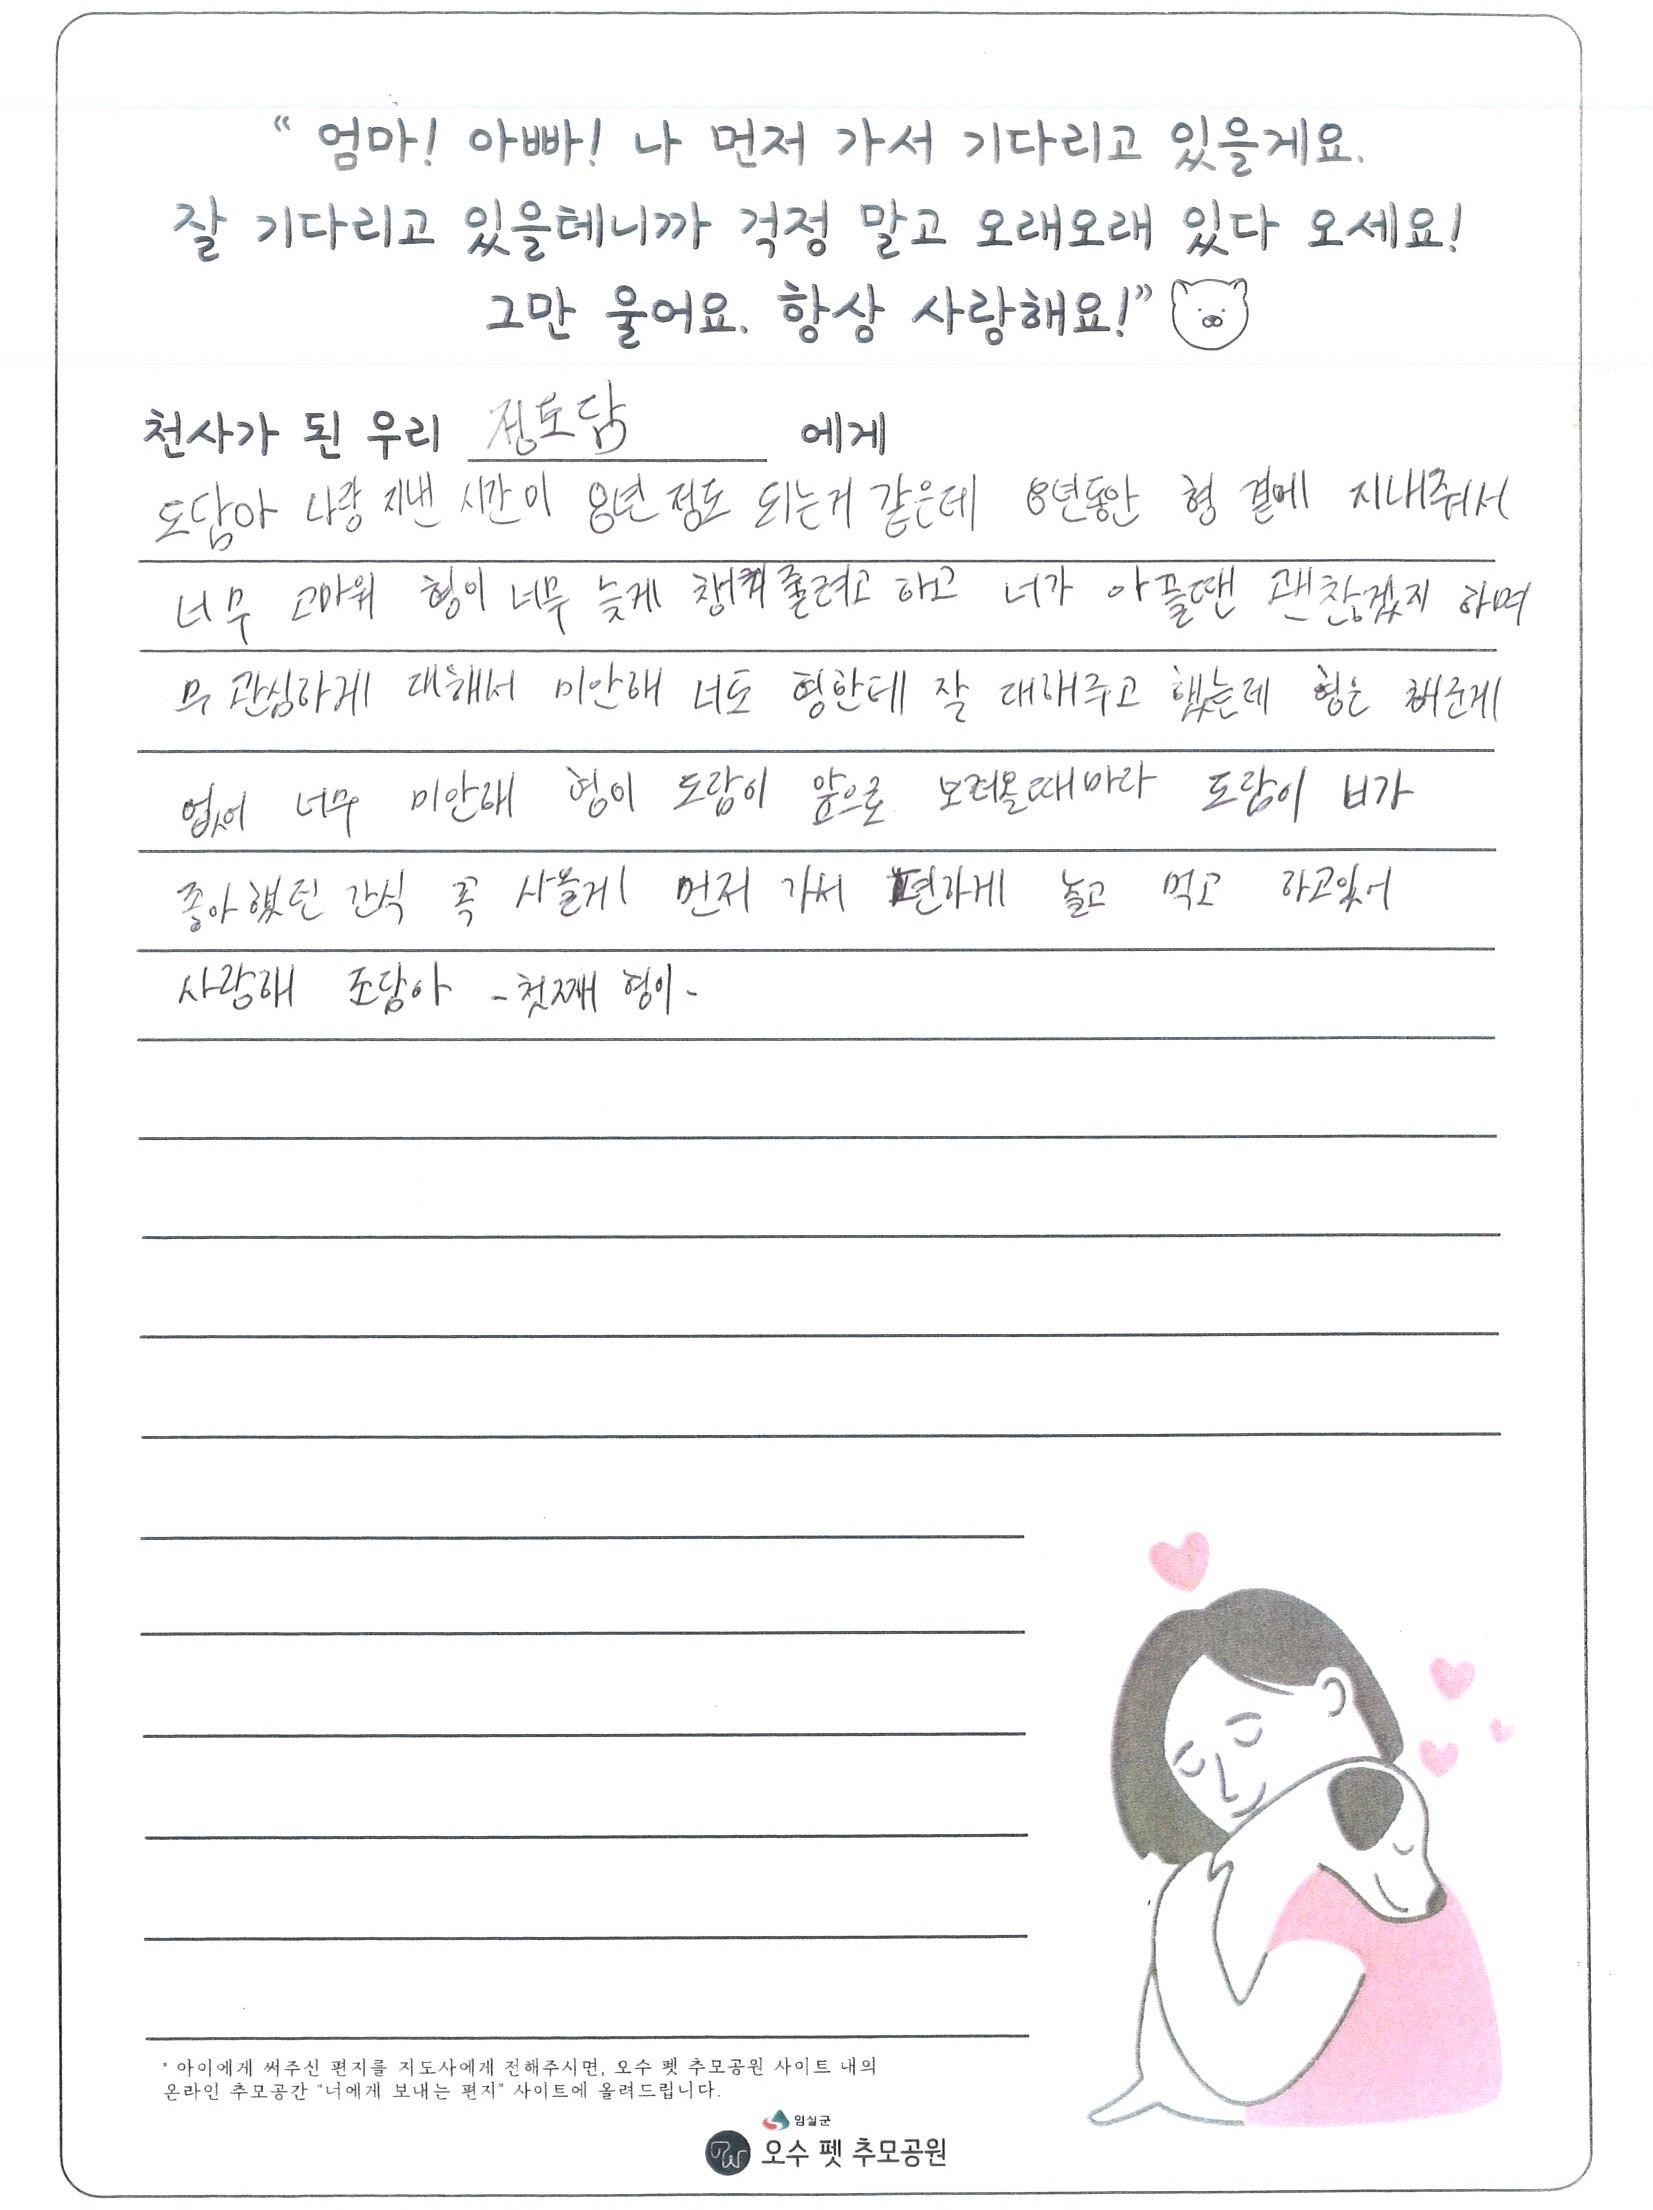 “ 엄마! 아빠! 나 먼저 가서 기다리고 있을게요.
잘 기다리고 있을테니까 걱정 말고 오래오래 있다 오세요!
그만 울어요. 항상 사랑해요!”
천사가 된 우리 정도담 에게
도담아 나랑 지낸 시간이 8년 정도 되는거 같은데 8년동안 형 곁에 지내줘서
너무 고마워 형이 너무 늦게 챙겨줄려고 하고 너가 아플땐 괜찮겠지 하며
무관심하게 대해서 미안해 너도 형한테 잘 대해주고 했는데 형은 해준게
없어 너무 미안해 형이 도담이 앞으로 보러올때마다 도담이 너가
좋아했던 간식 꼭 사올게 먼저 가서 편하게 놀고 먹고 하고있어
사랑해 도담아 - 첫째 형이 -
* 아이에게 써주신 편지를 지도사에게 전해주시면, 오수 펫 추모공원 사이트 내의
온라인 추모공간 “너에게 보내는 편지” 사이트에 올려드립니다.
임실군
오수 펫 추모공원